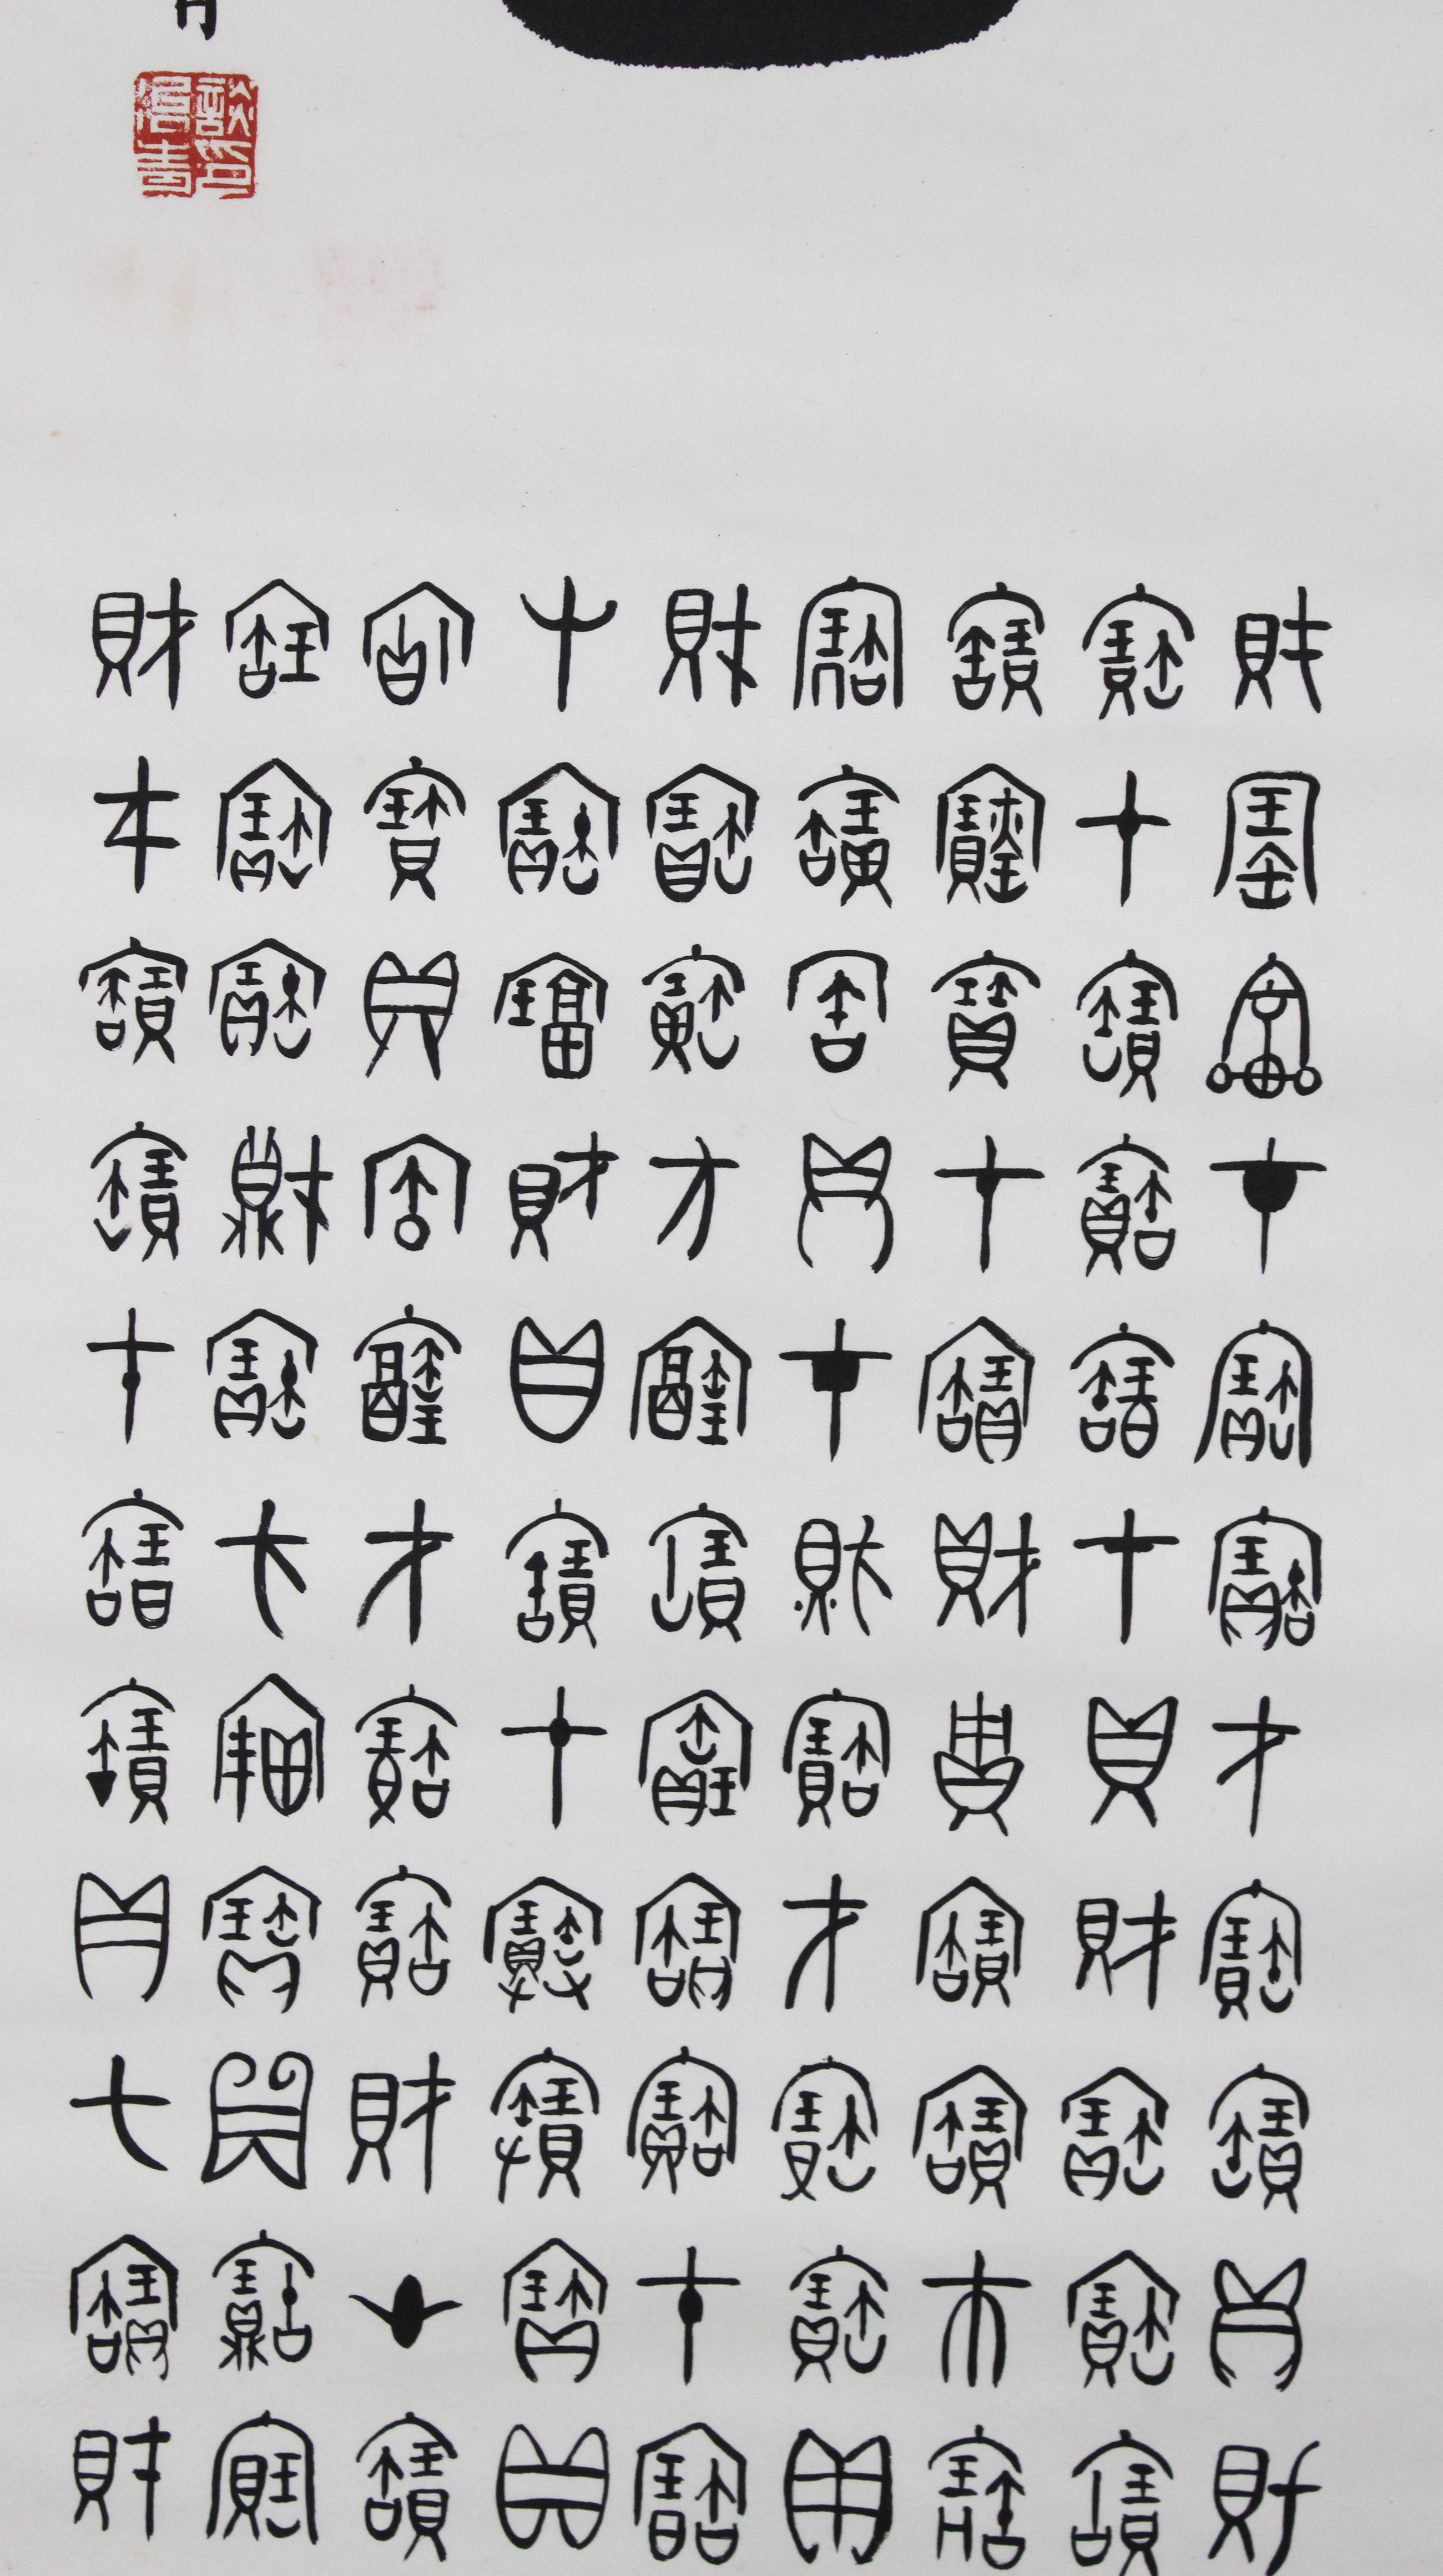 財寶寶才寶寶才寶寶貝財
寶才寶寶寶才貝財寶寶寶
寶寶寶才寶財寶寶才寶
寶寶寶貝才財寶才寶寶貝
財寶寶才寶寶寶寶寶才寶
才寶寶財貝寶才寶寶寶貝
寶寶貝寶寶才寶寶財才寶
寶寶寶財寶才寶寶貝寶寶
財才寶寶才寶寶貝才寶財